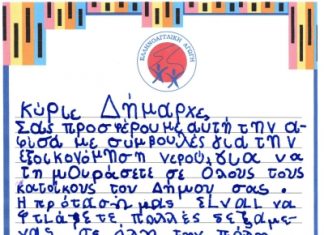 ΕΛΛΗΝΟΑΓΓΛΙΚΗ ΑΓΩΓΗ
Κύριε Δήμαρχε,
Σας προσφέρουμε αυτή την α-
φίσα με συμβουλές για την
εξοικονόμηση νερού, για να
τη μοιράσετε σε όλους τους
κατοίκους του Δήμου σας.
Η πρότασή μας είναι να
φτιάξετε πολλές δεξαμε-
νές σε όλη την πόλη